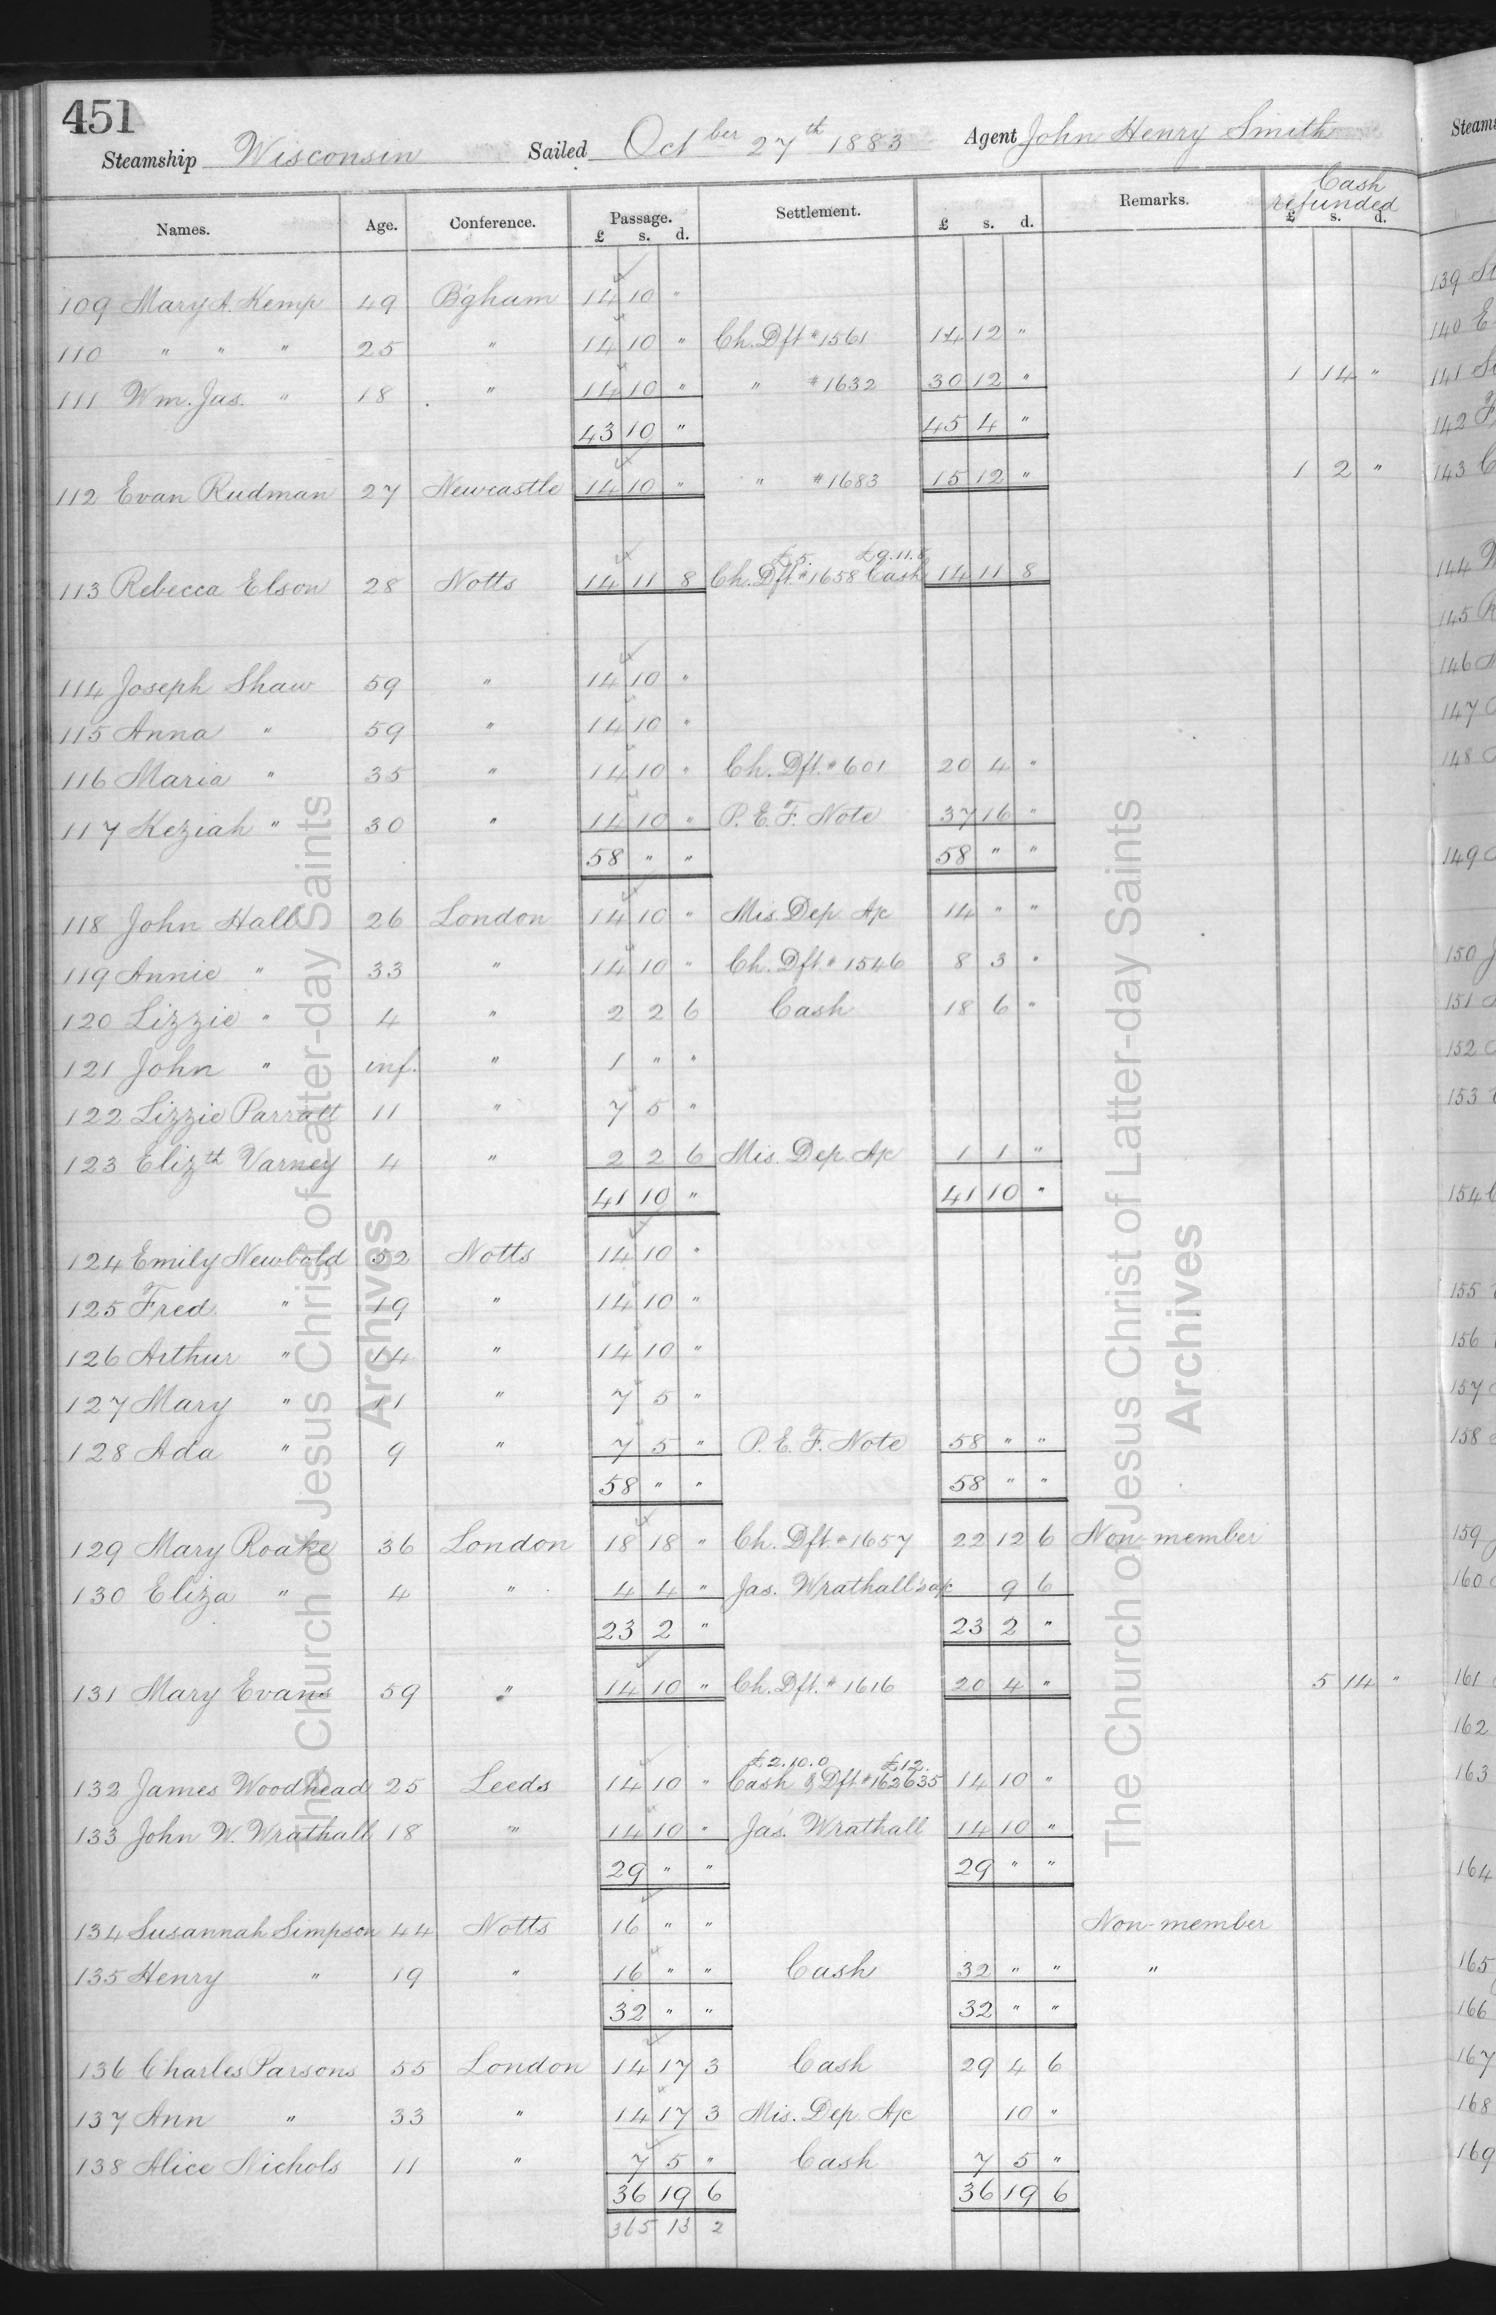 451
Steamship Wisconsin Sailed Octber 27th 1883 Agent John Henry Smith
Names. Age. Conference. Passage. £ s. d. Settlement. £ s. d. Remarks. Cash refunded £ s. d.
109 Mary A. Kemp 49 B'gham 14 10 "
110 " " " 25 " 14 10 " Ch. Dft # 1561 14 12 "
111 Wm. Jas. " 18 " 14 10 " " # 1632 30 12 " 1 14 "
43 10 " 45 4 "
112 Evan Rudman 27 Newcastle 14 10 " " # 1683 15 12 " 1 2 "
£5. £9.11.8
113 Rebecca Elson 28 Notts 14 11 8 Ch. Dft. # 1658 Cash 14 11 8
114 Joseph Shaw 59 " 14 10 "
115 Anna " 59 " 14 10 "
116 Maria " 35 " 14 10 " Ch. Dft. # 601 20 4 "
117 Keziah " 30 " 14 10 " P. E. F. Note 37 16 "
58 " " 58 " "
118 John Hall 26 London 14 10 " Mis. Dep. A/c 14 " "
119 Annie " 33 " 14 10 " Ch. Dft. # 1546 8 3 "
120 Lizzie " 4 " 2 2 6 Cash 18 6 "
121 John " inf. " 1 " "
122 Lizzie Parratt 11 " 7 5 "
123 Elizth Varney 4 " 2 2 6 Mis. Dep. A/c 1 1 "
41 10 " 41 10 "
124 Emily Newbold 52 Notts 14 10 "
125 Fred " 19 " 14 10 "
126 Arthur " 14 " 14 10 "
127 Mary " 11 " 7 5 "
128 Ada " 9 " 7 5 " P. E. F. Note 58 " "
58 " " 58 " "
129 Mary Roake 36 London 18 18 " Ch. Dft # 1657 22 12 6 Non-member
130 Eliza " 4 " 4 4 " Jas. Wrathall's a/c 9 6
23 2 " 23 2 "
131 Mary Evans 59 " 14 10 " Ch. Dft. # 1616 20 4 " 5 14 "
£2.10.0 £12.
132 James Woodhead 25 Leeds 14 10 " Cash & Dft # 162635 14 10 "
133 John W. Wrathall 18 " 14 10 " Jas. Wrathall 14 10 "
29 " " 29 " "
134 Susannah Simpson 44 Notts 16 " " Non-member
135 Henry " 19 " 16 " " Cash 32 " " "
32 " " 32 " "
136 Charles Parsons 55 London 14 17 3 Cash 29 4 6
137 Ann " 33 " 14 17 3 Mis. Dep. A/c 10 "
138 Alice Nichols 11 " 7 5 " Cash 7 5 "
36 19 6 36 19 6
365 13 2
The Church of Jesus Christ of Latter-day Saints
Archives
The Church of Jesus Christ of Latter-day Saints
Archives
139
140
141
142
143
144
145
146
147
148
149
150
151
152
153
154
155
156
157
158
159
160
161
162
163
164
165
166
167
168
169